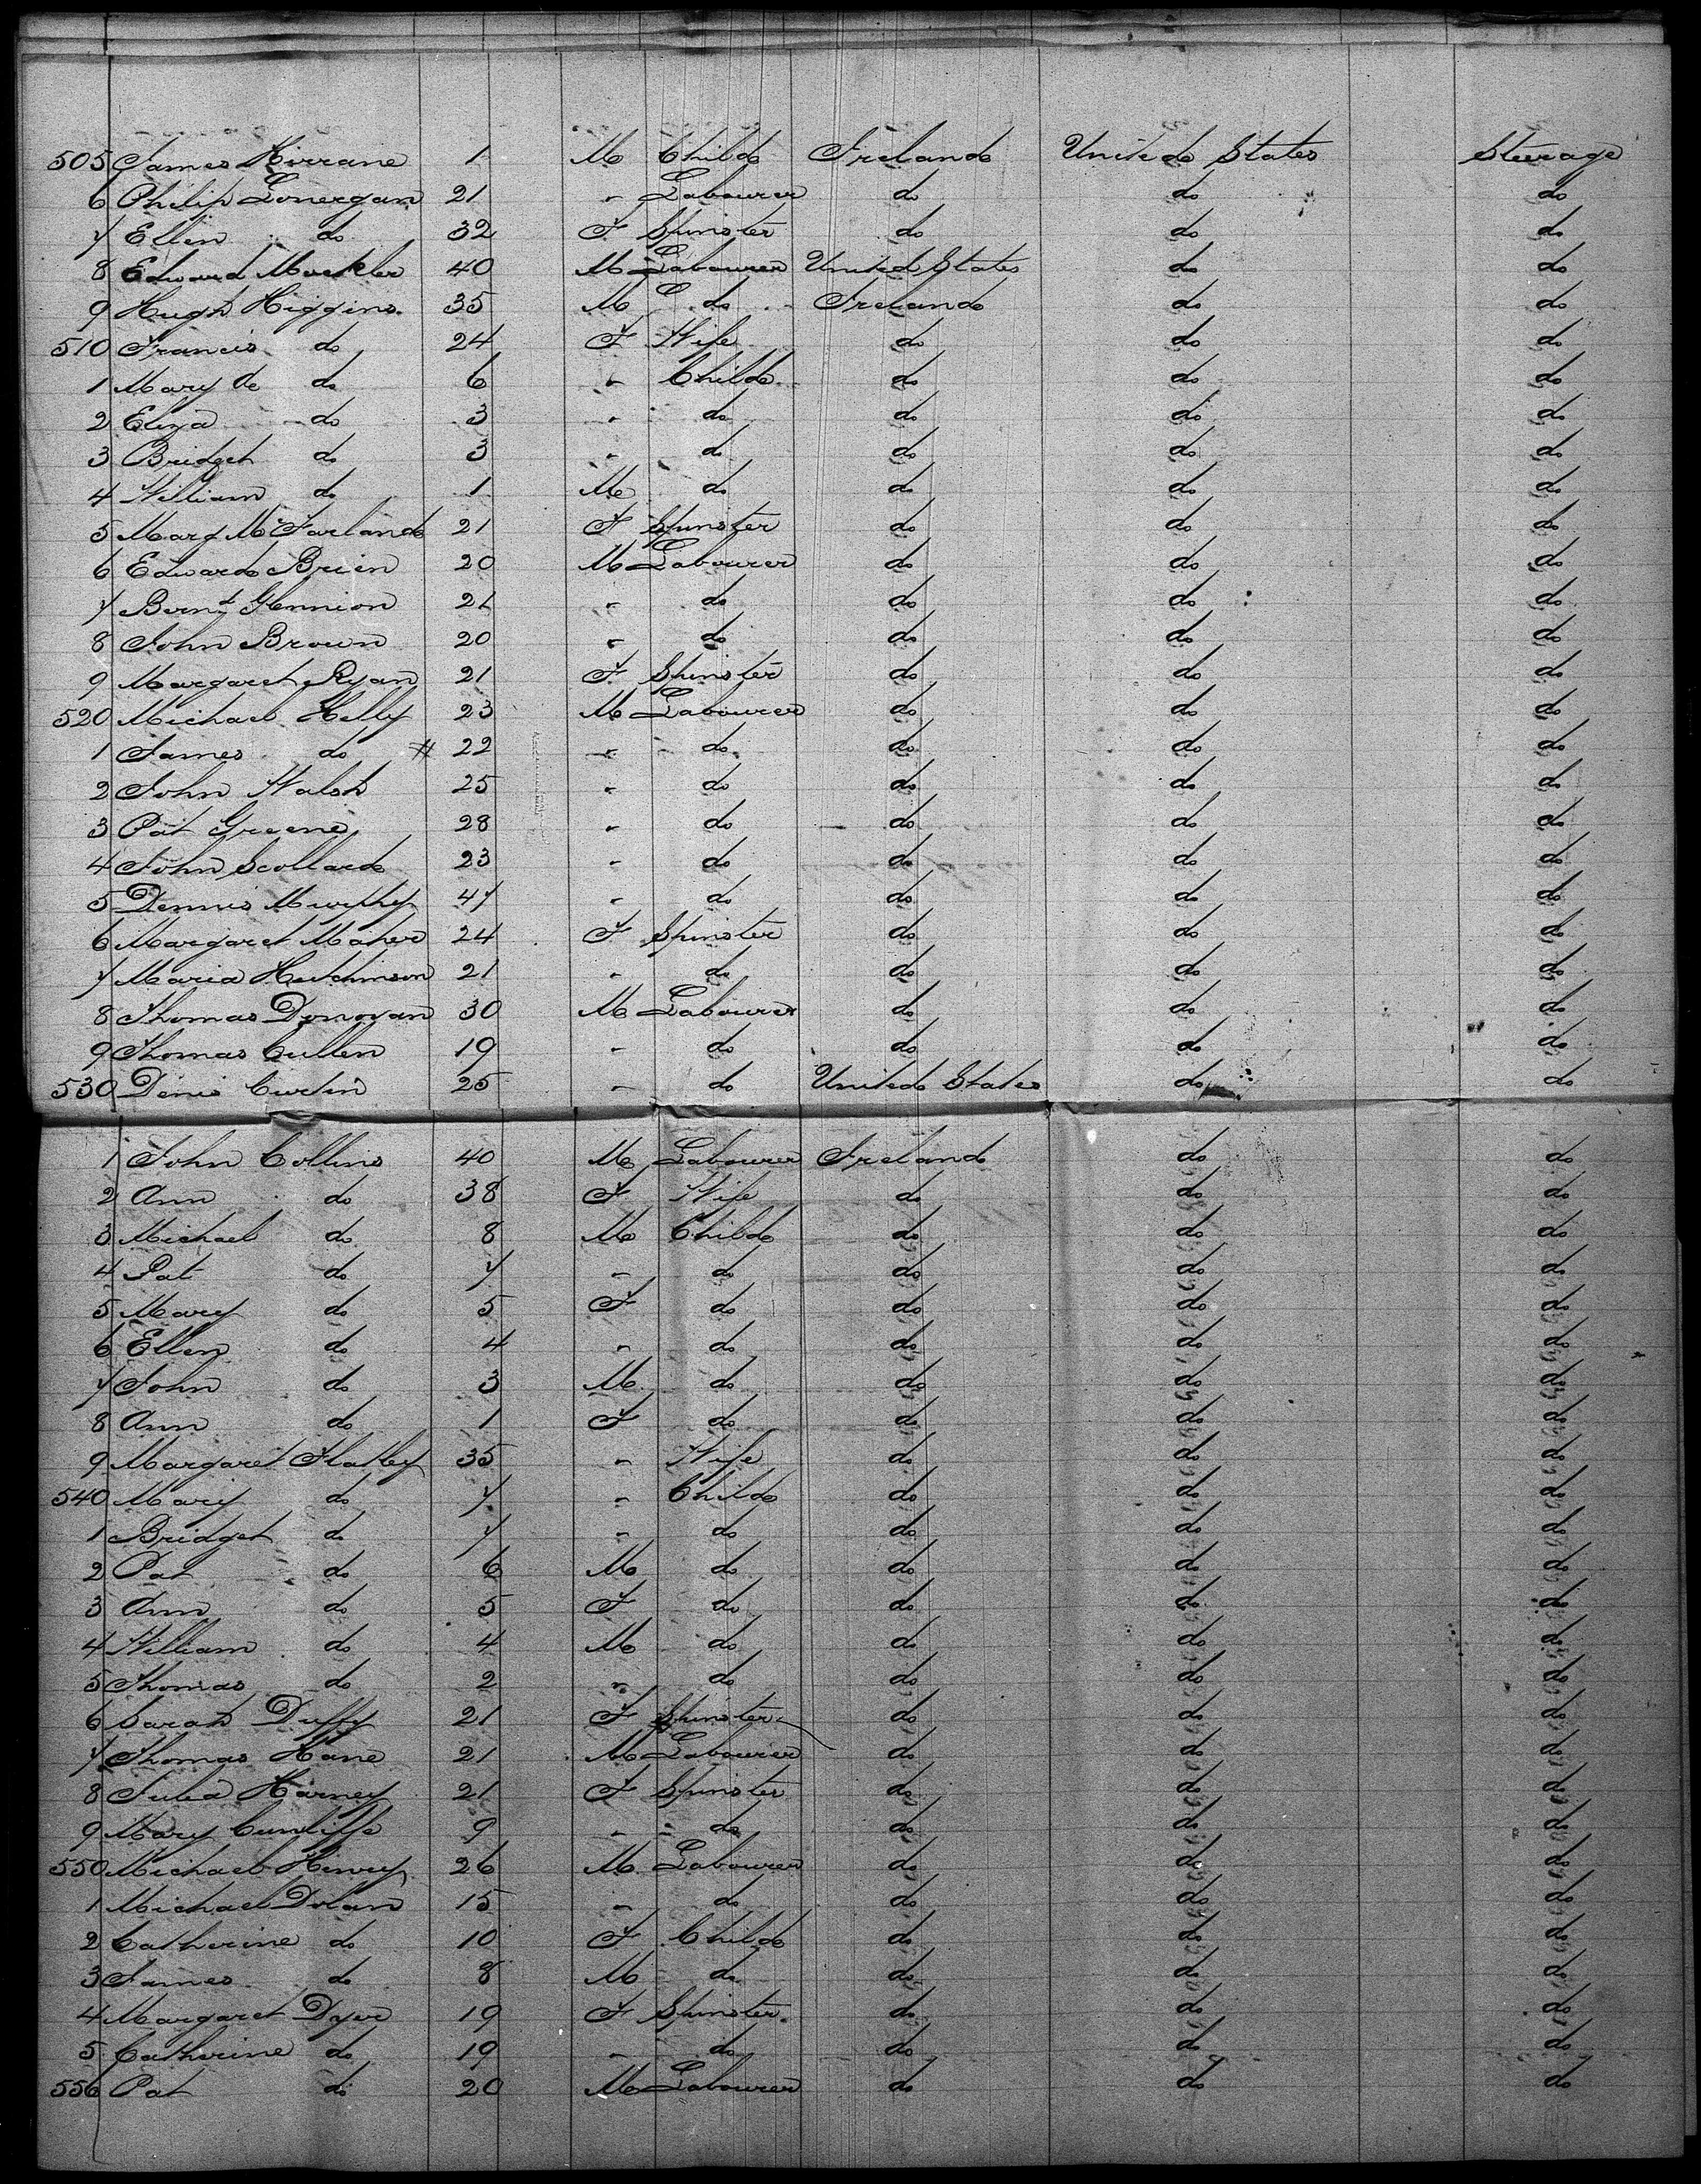 505 James Kirrane 1 M Child Ireland United States Steerage
6 Philip Lonergan 21 " Labourer do do do
7 Ellen do 32 F Spinster do do do
8 Edward Mockler 40 M Labourer United States do do
9 Hugh Higgins 35 M do Ireland do do
510 Francis do 24 F Wife do do do
1 Mary do 6 " Child do do do
2 Eliza do 3 " do do do do
3 Bridget do 3 " do do do do
4 William do 1 M do do do do
5 Mary McFarland 21 F Spinster do do do
6 Edward Brien 20 M Labourer do do do
7 Bernd Glennion 21 " do do do do
8 John Brown 20 " do do do do
9 Margaret Ryan 21 F Spinster do do do
520 Michael Kelly 23 M Labourer do do do
1 James do # 22 " do do do do
2 John Walsh 25 " do do do do
3 Pat Greene 28 " do do do do
4 John Scollard 23 " do do do do
5 Dennis Murphy 47 " do do do do
6 Margaret Maher 24 F Spinster do do do
7 Maria Hutchinson 21 " do do do do
8 Thomas Donovan 30 M Labourer do do do
9 Thomas Cullen 19 " do do do do
530 Denis Curtin 25 " do United States do do
1 John Collins 40 M Labourer Ireland do do
2 Ann do 38 F Wife do do do
3 Michael do 8 M Child do do do
4 Pat do 7 " do do do do
5 Mary do 5 F do do do do
6 Ellen do 4 " do do do do
7 John do 3 M do do do do
8 Ann do 1 F do do do do
9 Margaret Flatley 35 " Wife do do do
540 Mary do 7 " Child do do do
1 Bridget do 7 " do do do do
2 Pat do 6 M do do do do
3 Ann do 5 F do do do do
4 William do 4 M do do do do
5 Thomas do 2 " do do do do
6 Sarah Duffy 21 F Spinster do do do
7 Thomas Kane 21 M Labourer do do do
8 Julia Harney 21 F Spinster do do do
9 Mary Cunliffe 9 " do do do do
550 Michael Henry 26 M Labourer do do do
1 Michael Dolan 15 " do do do do
2 Catherine do 10 F Child do do do
3 James do 8 M do do do do
4 Margaret Dyer 19 F Spinster do do do
5 Catherine do 19 " do do do do
556 Pat do 20 M Labourer do do do